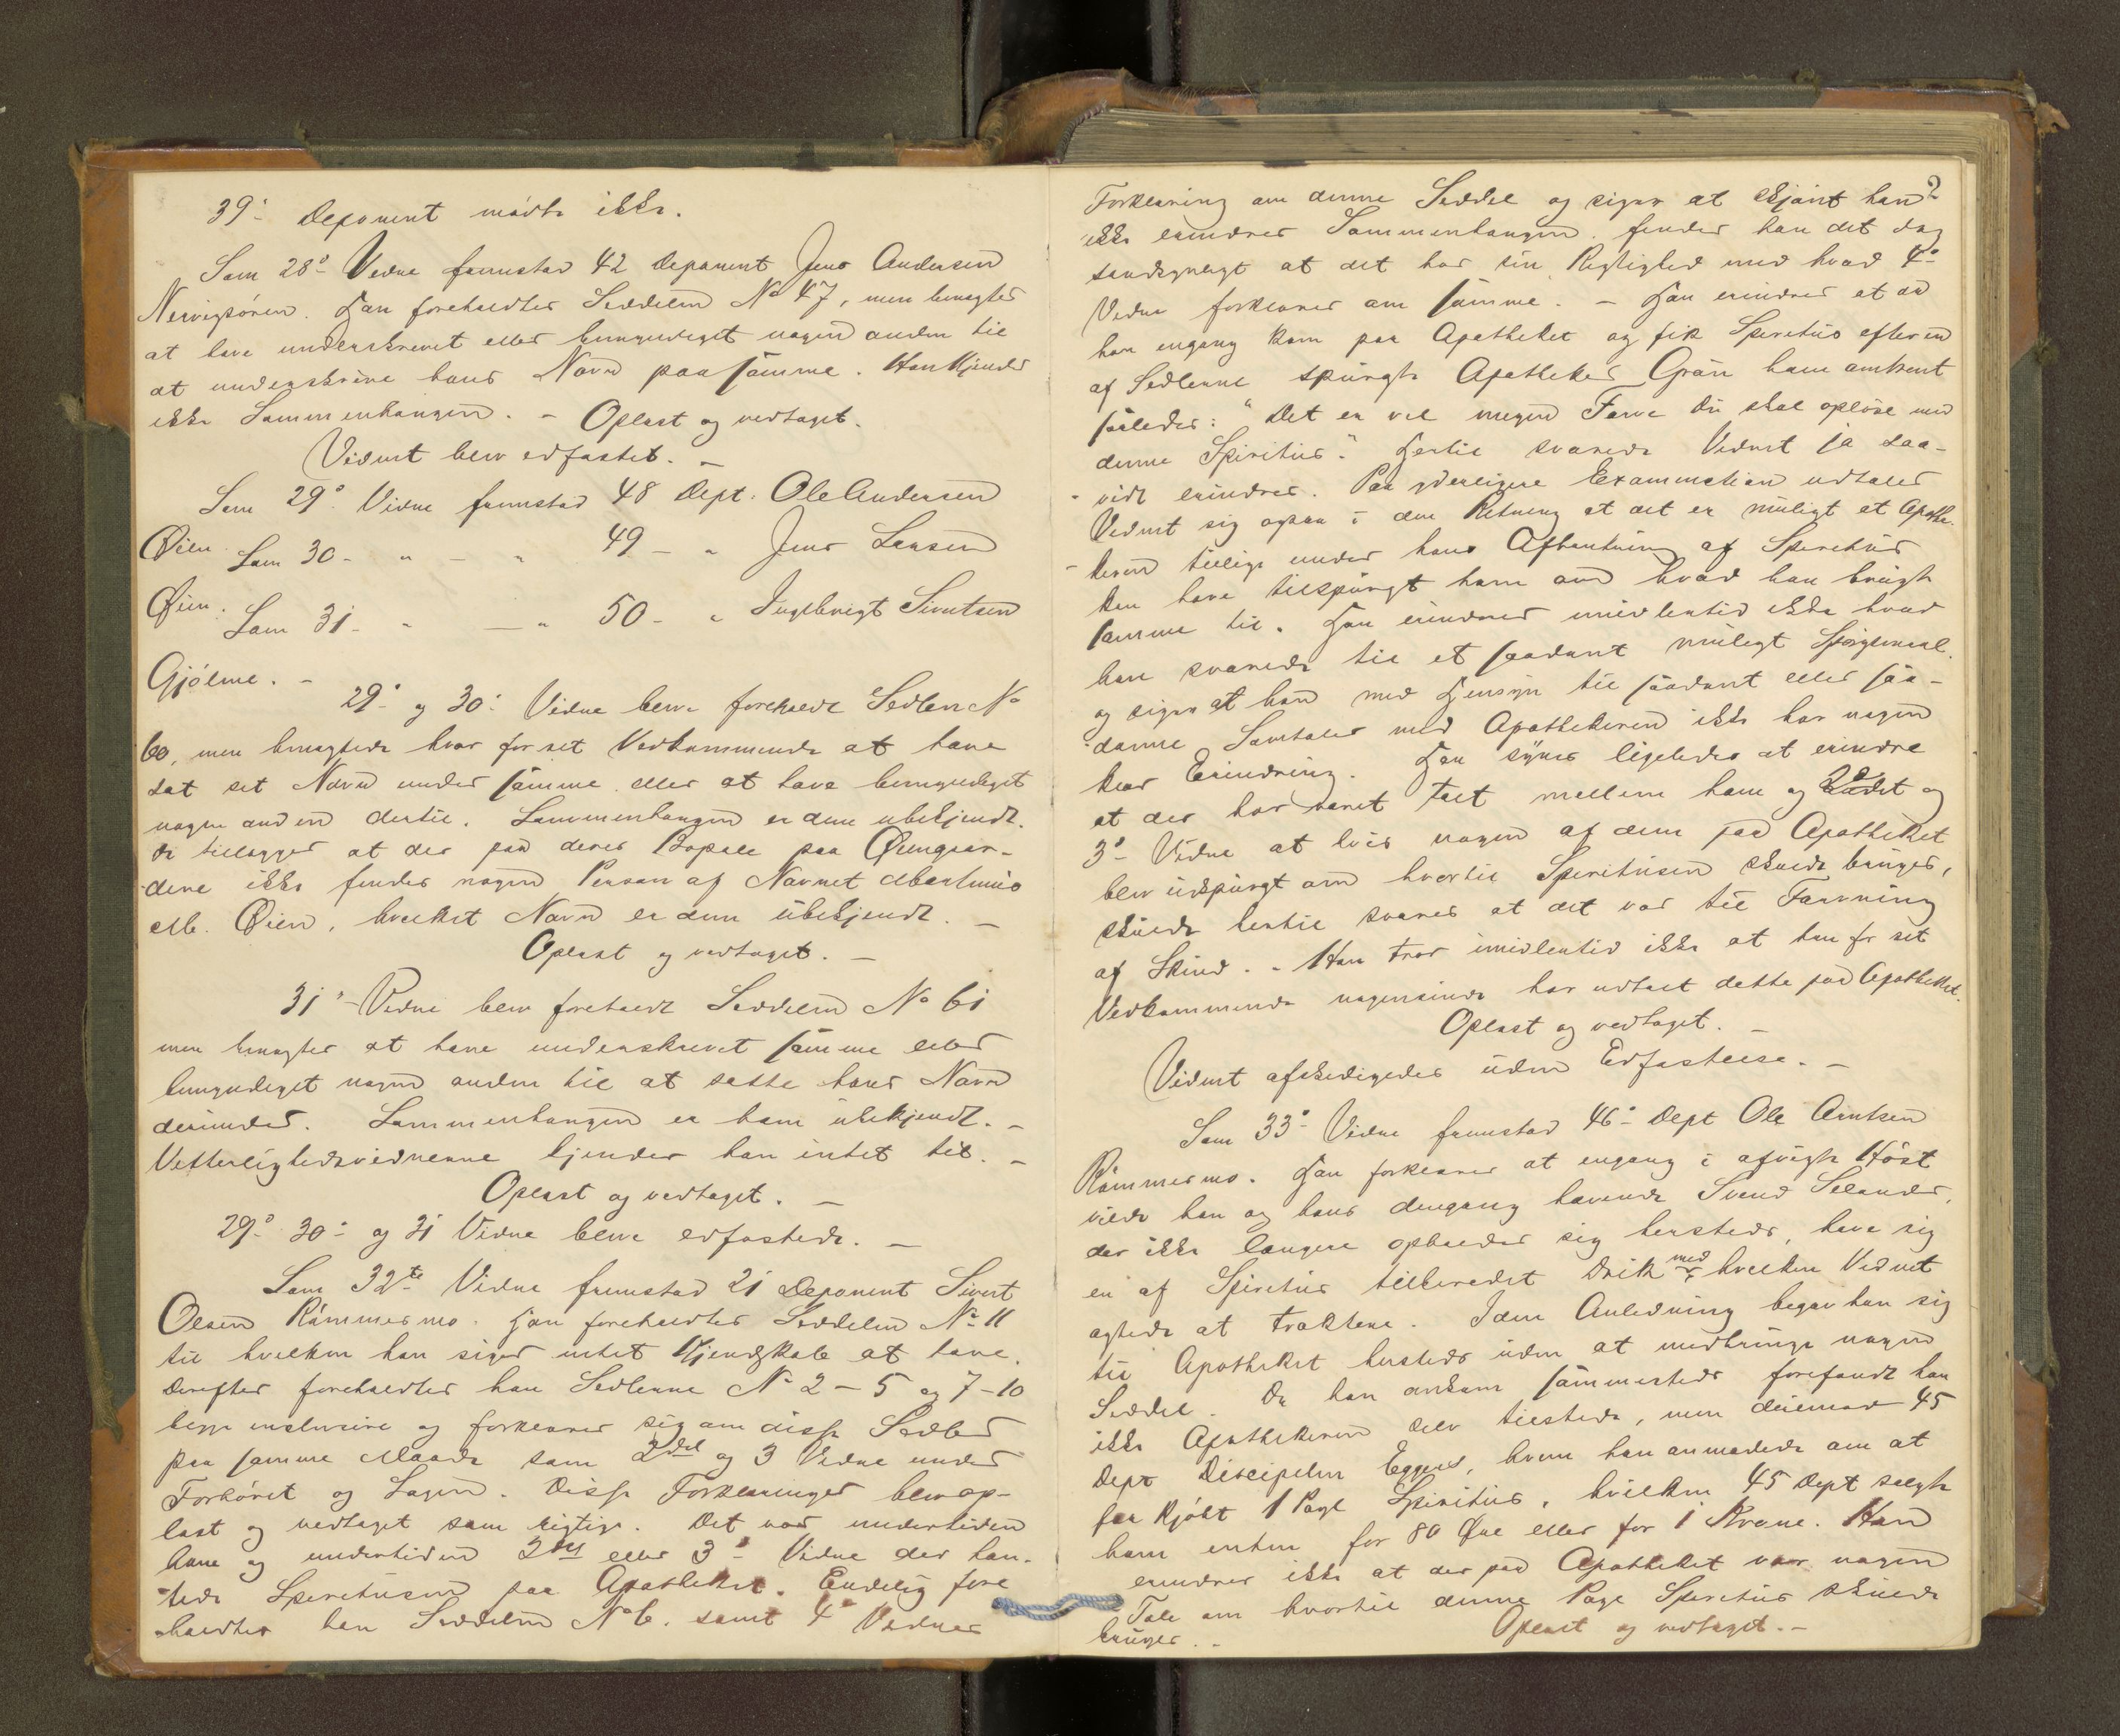 39' Deponent mødte ikke.
Som 28' Vidne fremstod 42 Deponent Jens Andersen
Nervigsøren. Han foreholdtes Seddelen No 47, men benegter
at have underskrevet eller bemyndiget nogen anden til
at underskrive hans Navn paa samme. Han kjender
ikke Sammenhængen. – Oplæst og vedtaget.
Vidnet blev edfæstet. –
Som 29' Vidne fremstod 48 Dept. Ole Andersen
Øien. Som 30 - " — " 49 - " Jens Larsen
Øien. Som 31 - " — " 50 - " Ingebrigt Sivertsen
Gjølme. –
29' og 30' Vidne bleve foreholdt Sedlen No
60, men benegtede hver for sit Vedkommende at have
sat sit Navn under samme eller at have bemyndiget
nogen anden dertil. Sammenhængen er dem ubekjendt.
De tillægger at der paa deres Bopæl paa Øiengaar-
dene ikke findes nogen Person af Navnet
M. Øien, hvilket Navn er dem ubekjendt. –
Oplæst og vedtaget. –
31' Vidne blev foreholdt Seddelen No 61
men benegter at have underskrevet samme eller
bemyndiget nogen anden til at sætte hans Navn
derunder. Sammenhængen er ham ubekjendt. –
Vitterlighedsvidnerne kjender han intet til. –
Oplæst og vedtaget. –
29' 30' og 31 Vidne bleve edfæstede. –
Som 32te Vidne fremstod 21 Deponent Sivert
Olsen Rømmesmo. Han foreholdtes Seddelen No 11
til hvilken han siger intet Kjendskab at have.
Derefter foreholdtes han Sedlerne No 2 – 5 og 7 – 10
begge inclusive og forklarer sig om disse Sedler
paa samme Maade som 2det og 3 Vidne under
Forhøret og Sagen. Disse Forklaringer blev op-
læst og vedtaget som rigtige. Det var undertiden
ham og undertiden 2det eller 3' Vidne der hen-
tede Spiritusen paa Apotheket. Endelig fore
holdtes han Seddelen No 6. samt 4' Vidnes
2
Forklaring om denne Seddel og siger at skjønt han
ikke erindrer Sammenhængen finder han det dog
sandsynligt at det har sin Rigtighed med hvad 4'
Vidne forklarer om samme. – Han erindrer at da
han engang kom paa Apotheket og fik Spiritus efter en
af Sedlerne spurgte Apotheker Grøn ham omtrent
saaledes: "Det er vel megen Farve Du skal opløse med
denne Spiritus." Hertil svarede Vidnet ja saa-
vidt erindres. Paa yderligere Examination udtaler
Vidnet sig ogsaa i den Retning at det er muligt at Apothe-
keren tillige under hans Afhentning af Spiritus
kan have tilspurgt ham om hvad han brugte
samme til. Han erindrer imidlertid ikke hvad
han svarede til et saadant muligt Spørgsmaal.
og siger at han med Hensyn til saadant eller saa-
danne Samtaler med Apothekeren ikke har nogen
klar Erindring. Han synes ligeledes at erindre
at der har været talt mellem ham og 2det og
3' Vidne at hvis nogen af dem paa Apotheket
blev udspurgt om hvortil Spiritusen skulde bruges,
skulde hertil svares at det var til Farvning
af Skind. – Han tror imidlertid ikke at han for sit
Vedkommende nogensinde har udtalt dette paa Apotheket.
Oplæst og vedtaget. –
Vidnet afskedigedes uden Edfæstelse. –
Som 33' Vidne fremstod 46' Dept Ole Arntsen
Rømmesmo. Han forklarer at engang i afvigte Høst
vilde han og hans dengang havende Svend Selander,
der ikke længere opholder sig hersteds, have sig
en af Spiritus tilberedet Drik med hvilken Vidnet
agtede at traktere. I den Anledning begav han sig
til Apotheket hersteds uden at medbringe nogen
Seddel. Da han ankom sammesteds forefandt han
ikke Apothekeren selv tilstede, men derimod 45
Dept Discipelen Eggen, hvem han anmodede om at
faa kjøbt 1 Pægl Spiritus, hvilken 45 Dept solgte
ham enten for 80 Øre eller for 1 Krone. Han
erindrer ikke at der paa Apotheket var nogen
Tale om hvortil denne Pægl Spiritus skulde
bruges. –
Oplæst og vedtaget. –